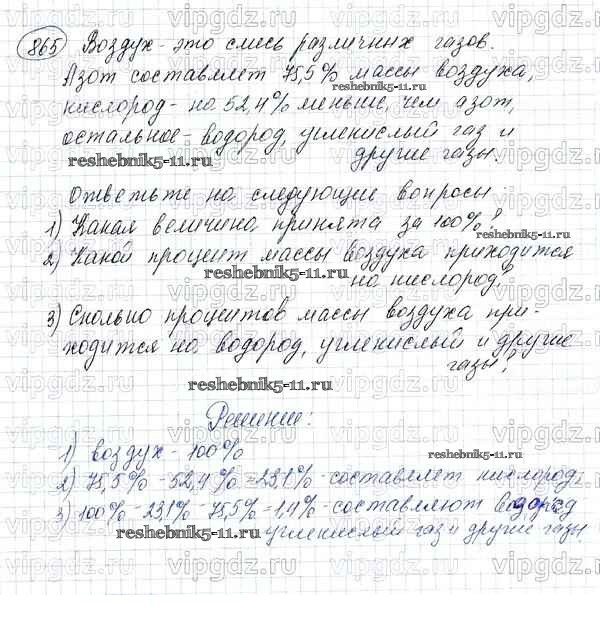 865 Воздух - это смесь различных газов.
Азот составляет 75,5% массы воздуха,
кислород - на 52,4% меньше, чем азот,
остальное - водород, углекислый газ и
другие газы.
reshebnik5-11.ru
Ответьте на следующие вопросы:
1) Какая величина принята за 100%?
2) Какой процент массы воздуха приходится
reshebnik5-11.ru
на кислород?
3) Сколько процентов массы воздуха при-
ходится на водород, углекислый и другие
газы?
reshebnik5-11.ru
Решение:
1) воздух - 100%
reshebnik5-11.ru
2) 75,5% - 52,4% = 23,1% - составляет кислород
3) 100% - 23,1% - 75,5% = 1,4% - составляют водород
reshebnik5-11.ru
углекислый газ и другие газы
vipgdz.ru